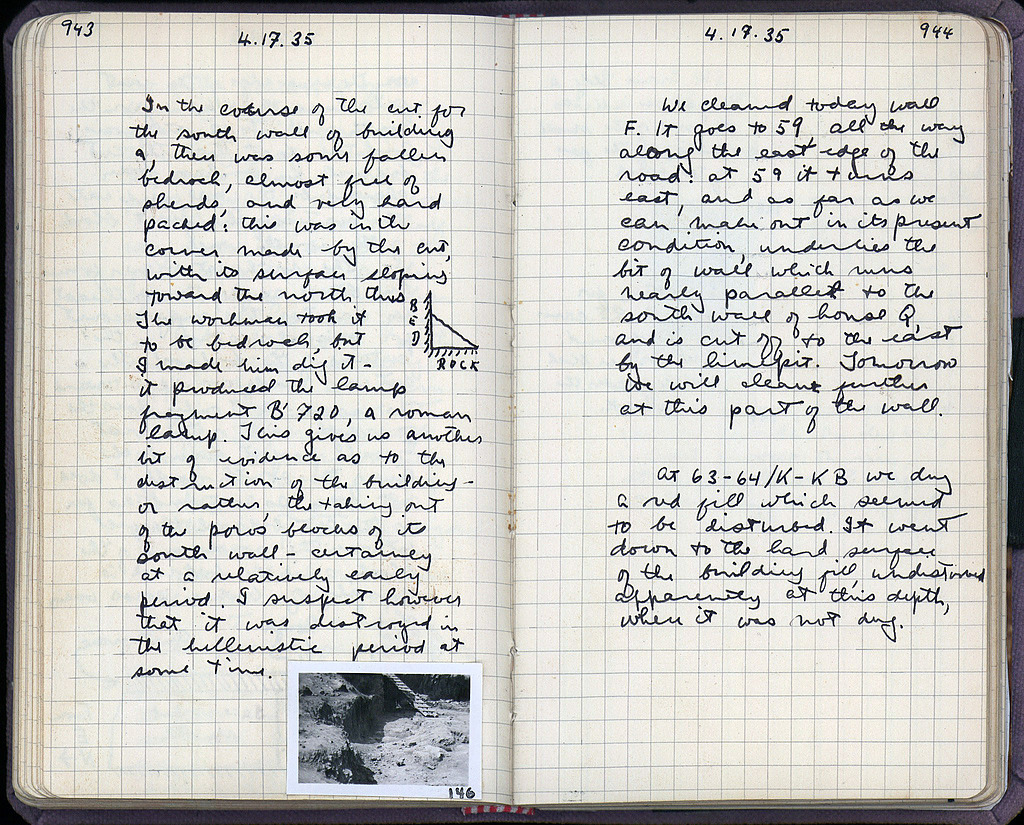 943
4.17.35
In the course of the cut for
the south wall of building
9, there was some fallen
bedrock, almost free of
sherds, and very hard
packed: this was in the
corner made by the cut,
with its surface sloping
toward the north thus
The workman took it
to be bedrock, but
I made him dig it -
it produced the lamp
fragment B'720, a roman
lamp. This gives us another
bit of evidence as to the
destruction of the building -
or rather, the taking out
of the poros blocks of its
south wall - certainly
at a relatively early
period. I suspect however
that it was destroyed in
the hellenistic period at
some time.
BED
ROCK
146
944
4.17.35
We cleaned today wall
F. It goes to 59, all the way
along the east edge of the
road: at 59 it turns
east, and as far as we
can make out in its present
condition, underlies the
bit of wall which runs
nearly parallel to the
south wall of house Q,
and is cut off to the east
by the limepit. Tomorrow
we will clean further
at this part of the wall.
At 63-64/K-KB we dug
a red fill which seemed
to be disturbed. It went
down to the hard surface
of the building fill, undisturbed
apparently at this depth,
where it was not dug.